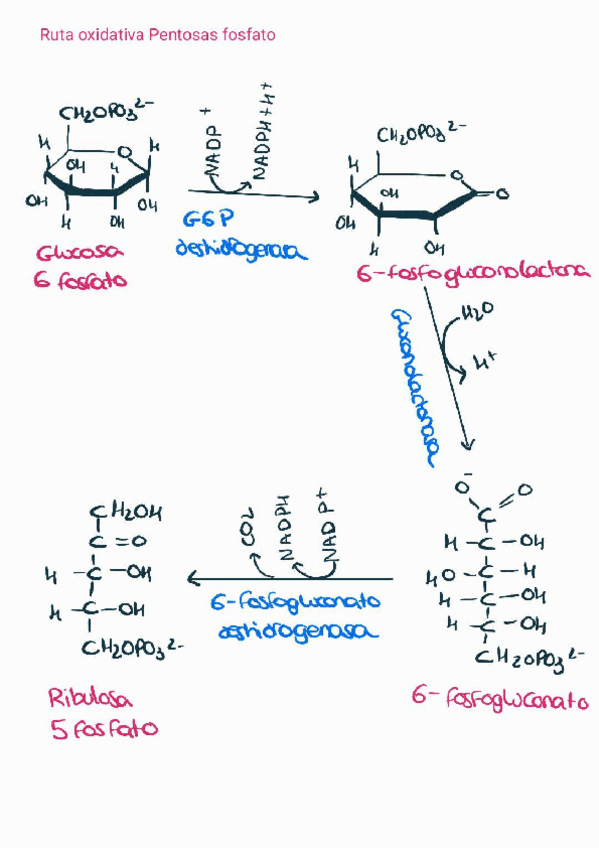 Ruta oxidativa Pentosas fosfato
CH2OPO3 2-
H
O
H
OH
H
OH
OH
H
OH
Glucosa
6 fosfato
NADP +
NADPH+H+
G6P
deshidrogenasa
CH2OPO3 2-
H
O
O
OH
OH
H
OH
6-fosfogluconolactona
H2O
H+
Gluconolactonasa
O-
O
C
H-C-OH
HO-C-H
H-C-OH
H-C-OH
CH2OPO3 2-
6-fosfogluconato
CO2
NADPH
NADP+
6-fosfogluconato
deshidrogenasa
CH2OH
C=O
H-C-OH
H-C-OH
CH2OPO3 2-
Ribulosa
5 fosfato